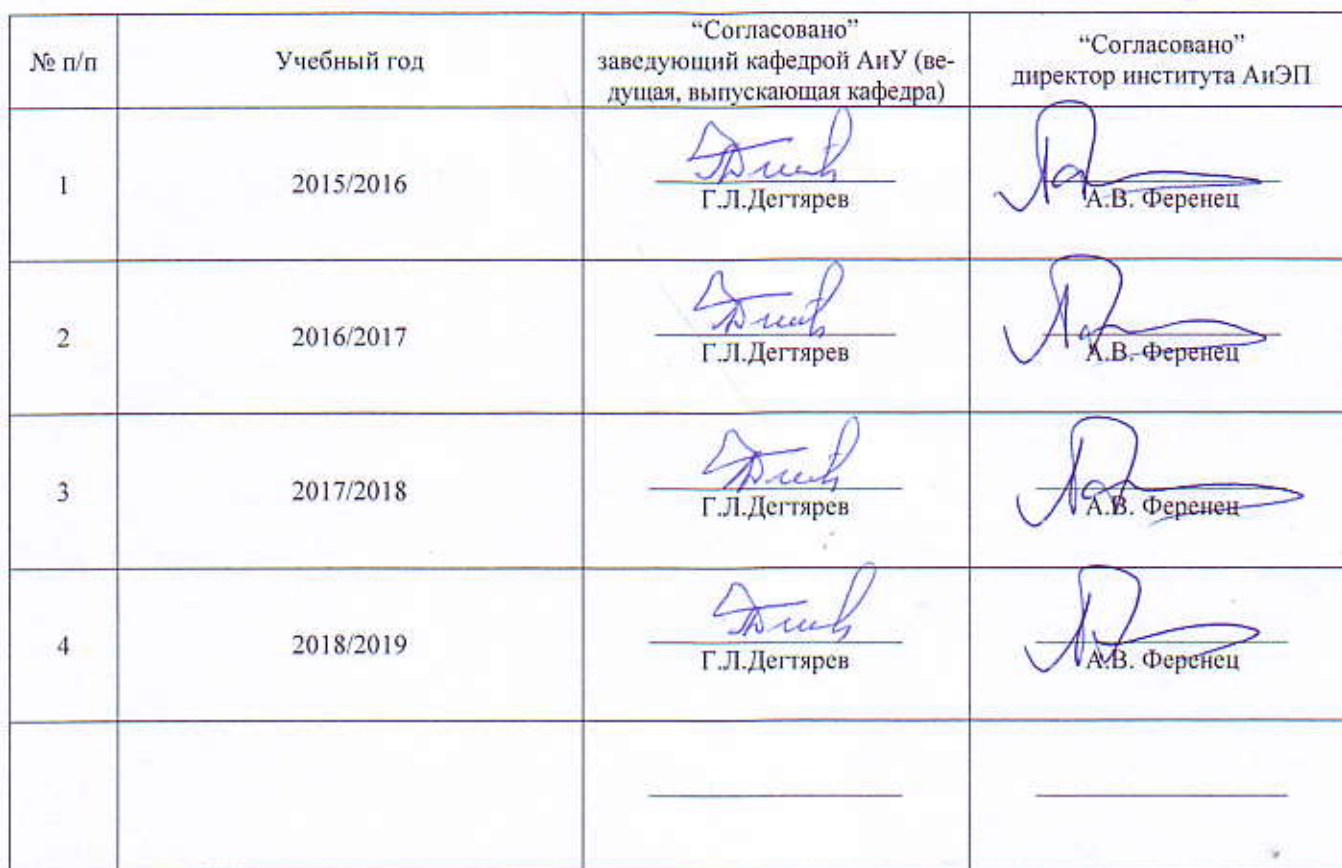 № п/п
Учебный год
“Согласовано”
заведующий кафедрой АиУ (ве-
дущая, выпускающая кафедра)
“Согласовано”
директор института АиЭП
1
2015/2016
Г.Л.Дегтярев
А.В. Ференец
2
2016/2017
Г.Л.Дегтярев
А.В. Ференец
3
2017/2018
Г.Л.Дегтярев
А.В. Ференец
4
2018/2019
Г.Л.Дегтярев
А.В. Ференец